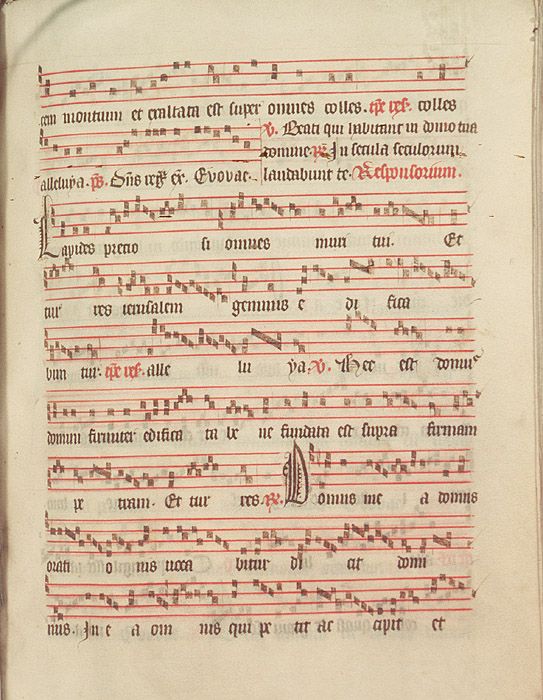 cem montium et exaltata est super omnes colles. tpe pas. colles
v. Beati qui habitant in domo tua
domine. R. In secula seculorum
alleluya. ps. Dns reg. ex. Evovae. laudabunt te. Responsorium.
Lapides precio si omnes muri tui. Et
tur res ierusalem gemmis e di fica
bun tur. tpe pas. alle lu ya. v. Hec est domus
domini firmiter edifica ta be ne fundata est supra firmam
pe tram. Et tur res. R. Domus me a domus
orati o nis uoca bitur di cit domi
nus. In e a om nis qui pe tit ac cipit et